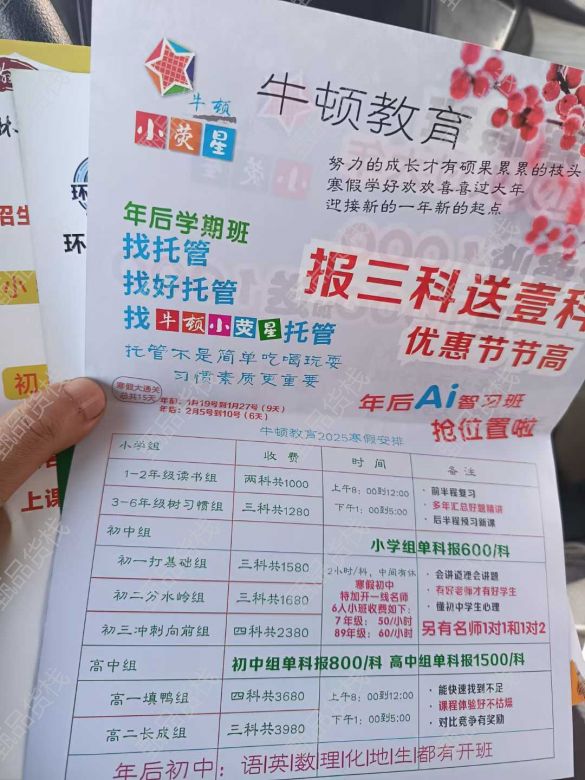 牛顿
小荧星
牛顿教育
努力的成长才有硕果累累的枝头
寒假学好欢欢喜喜过大年
迎接新的一年新的起点
年后学期班
找托管
找好托管
找牛顿小荧星托管
托管不是简单吃喝玩耍
习惯素质更重要
报三科送壹科
优惠节节高
年后Ai智习班
抢位置啦
寒假大通关
总共15天
年前：1月19号到1月27号（9天）
年后：2月5号到10号（6天）
牛顿教育2025寒假安排
小学组 收费 时间 备注
1-2年级读书组 两科共1000
3-6年级树习惯组 三科共1280
上午8：00到12:00
下午1：00到5:00
·前半程复习
·多年汇总好题精讲
·后半程预习新课
初中组 小学组单科报600/科
初一打基础组 三科共1580
初二分水岭组 三科共1680
初三冲刺向前组 四科共2380
2小时/科，中间有休
寒假初中
特加开一线名师
6人小班收费如下：
7年级：50/小时
89年级：60/小时
·会讲道理会讲题
·有好老师才有好学生
·懂初中学生心理
另有名师1对1和1对2
高中组 初中组单科报800/科 高中组单科报1500/科
高一填鸭组 四科共3680
高二长成组 三科共3980
上午8：00到12:00
下午1：00到5:00
·能快速找到不足
·课程体验好不枯燥
·对比竞争有奖励
年后初中：语|英|数|理|化|地|生|都有开班
环
环
招生
小
初
上课
甄品货栈